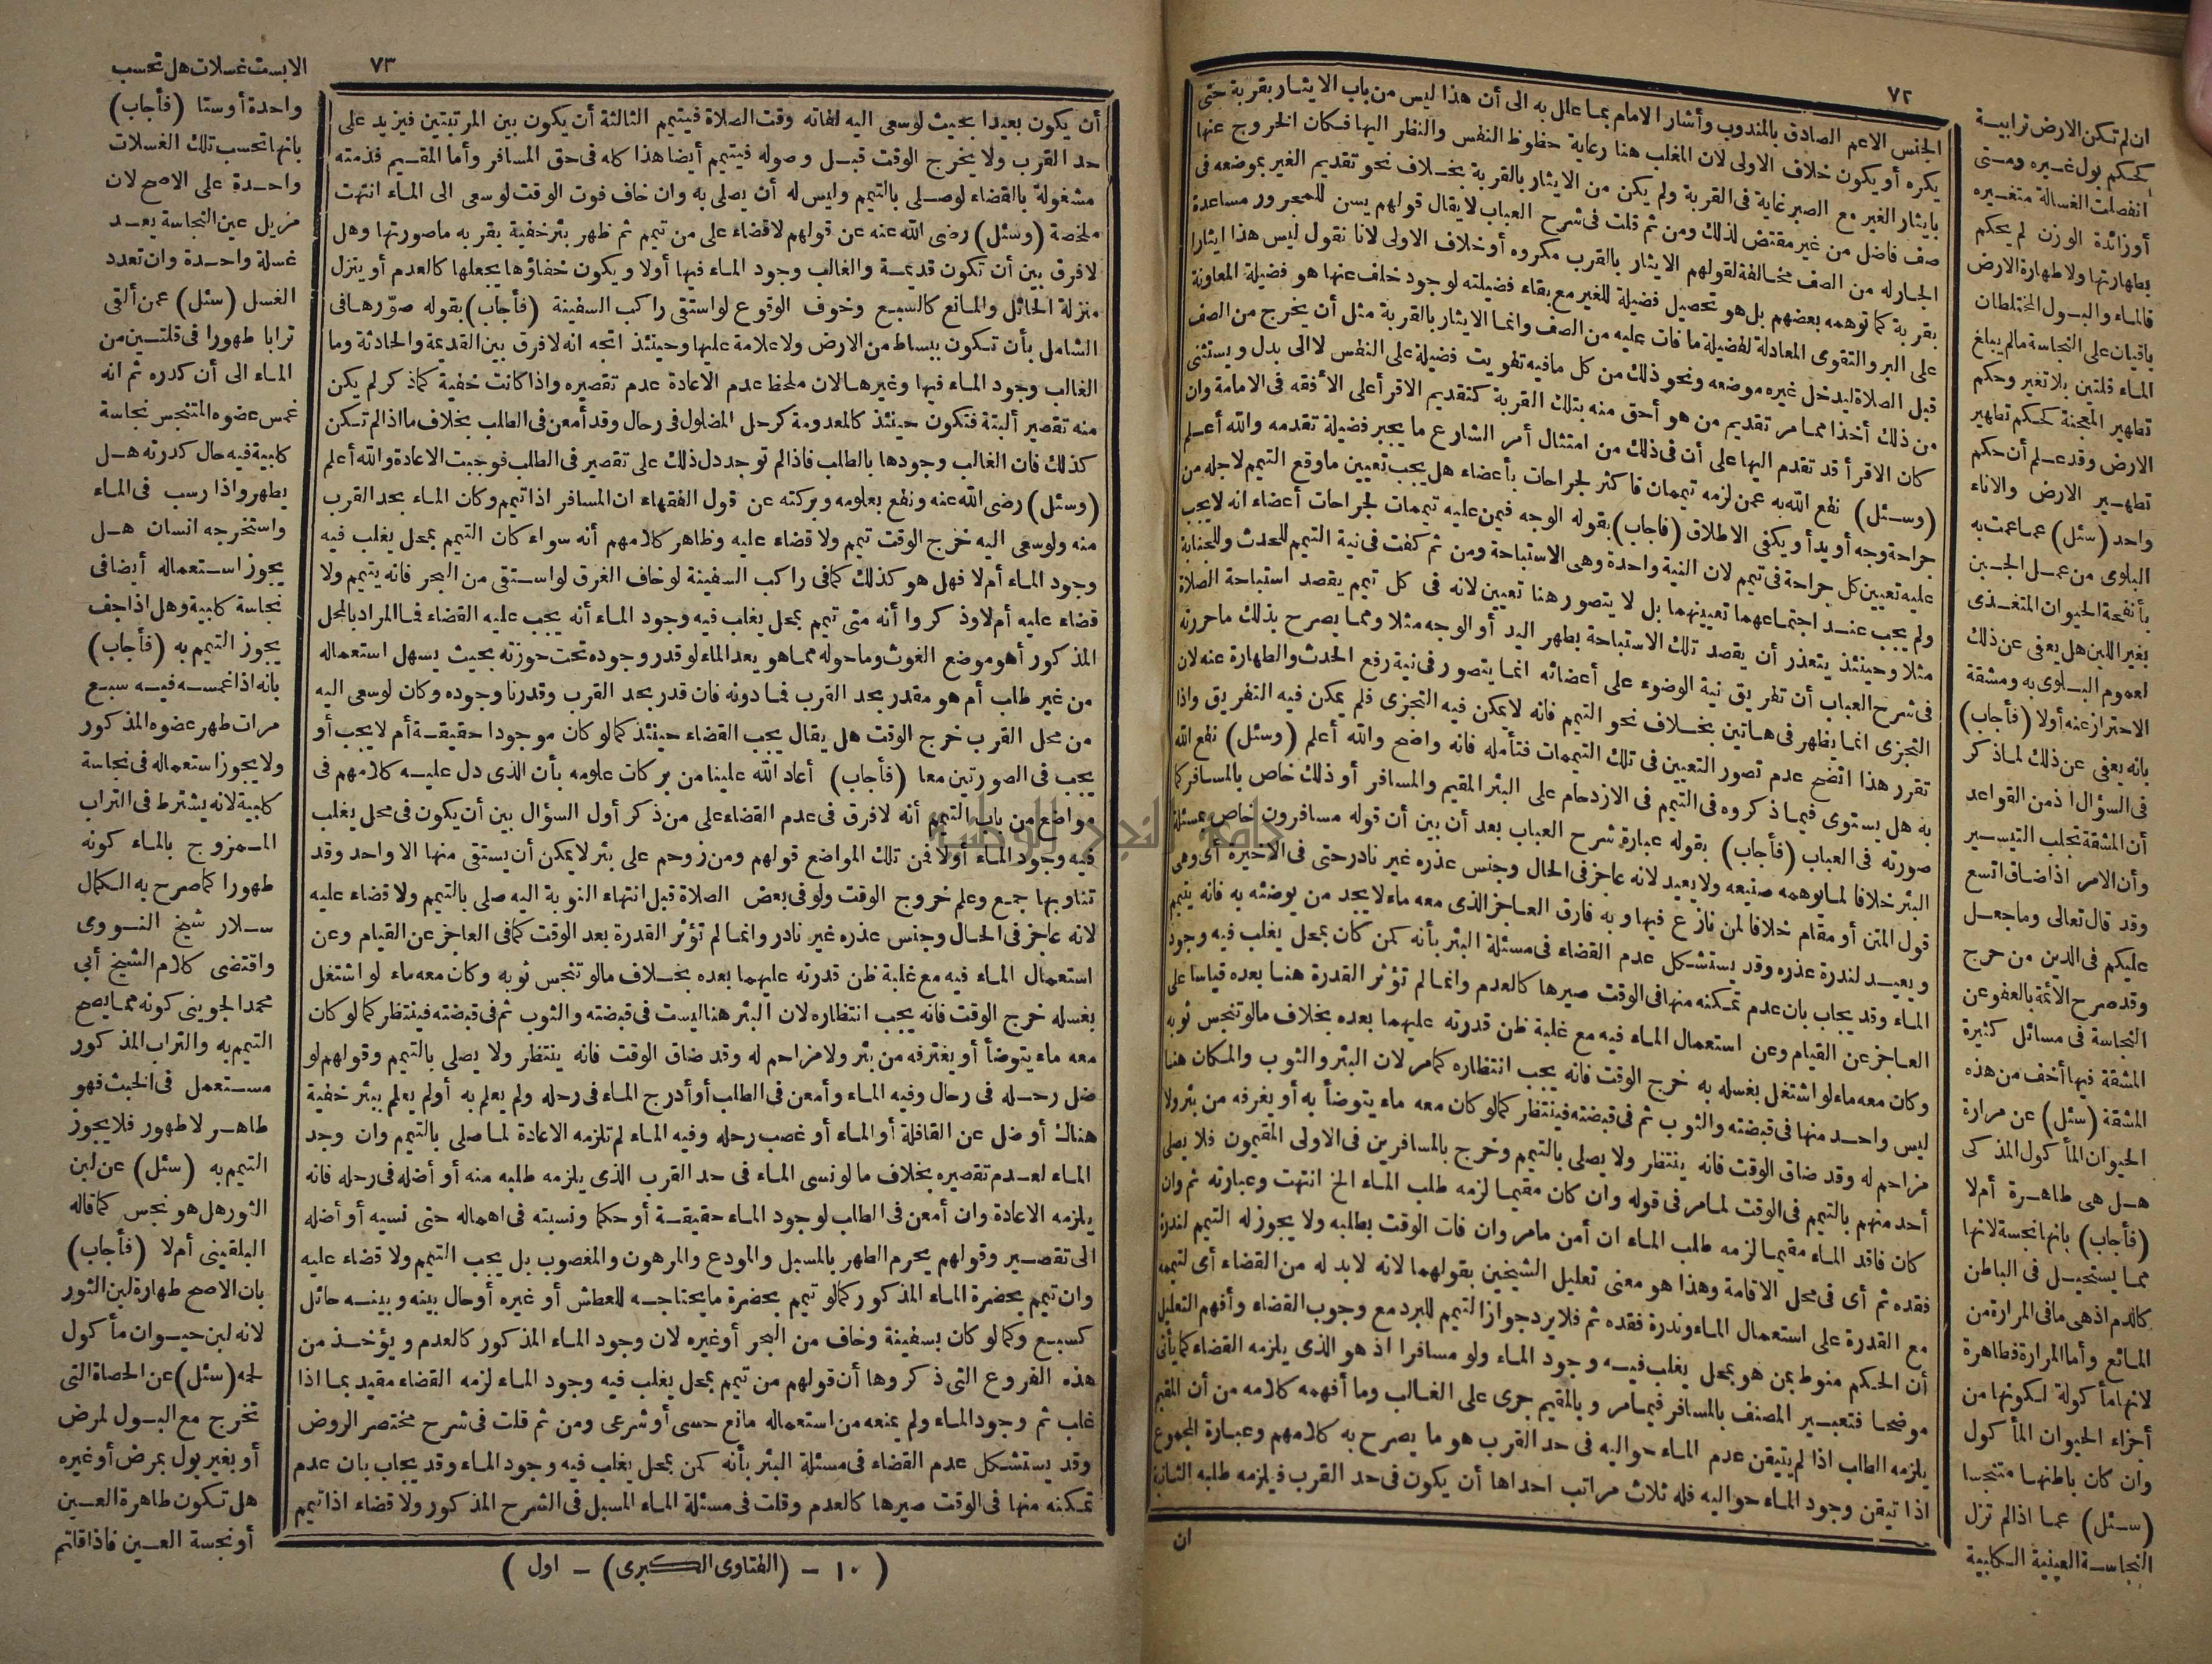 ٧٢
الجنس الاعم الصادق بالمندوب وأشار الامام بما علل به الى أن هذا ليس من باب الايثار بقربة حتى
يكره أو يكون خلاف الاولى لان المغلب هنا رعاية حظوظ النفس والنظر اليها فكان الخروج عنها
بايثار الغير مع الصبر غاية فى القربة ولم يكن من الايثار بالقربة بخلاف نحو تقديم الغير بموضعه فى
صف فاضل من غير مقتض لذلك ومن ثم قلت فى شرح العباب لا يقال قولهم يسن للمجرور مساعدة
الجار له من الصف مخالفة لقولهم الايثار بالقرب مكروه أو خلاف الاولى لانا نقول ليس هذا ايثارا
بقربة كما توهمه بعضهم بل هو تحصيل فضيلة للغير مع بقاء فضيلته لوجود خلف عنها هو فضيلة المعاونة
على البر والتقوى المعادلة لفضيلة ما فات عليه من الصف وانما الايثار بالقربة مثل أن يخرج من الصف
قبل الصلاة ليدخل غيره موضعه ونحو ذلك من كل ما فيه تفويت فضيلة على النفس لا الى بدل ويستثنى
من ذلك أخذا مما مر تقديم من هو أحق منه بتلك القربة كتقديم الاقرأ على الأفقه فى الامامة وان
كان الاقرأ قد تقدم اليها على أن فى ذلك من امتثال أمر الشارع ما يجبر فضيلة تقدمه والله أعلم
(وسئل) نفع الله به عمن لزمه تيممات فاكثر لجراحات بأعضاء هل يجب تعيين ما وقع التيمم لاجله من
جراحة وجه أو يد أو يكفى الاطلاق (فاجاب) بقوله الوجه فيمن عليه تيممات لجراحات أعضاء انه لا يجب
عليه تعيين كل جراحة فى تيمم لان النية واحدة وهى الاستباحة ومن ثم كفت فى نية التيمم للحدث وللجنابة
ولم يجب عند اجتماعهما تعيينهما بل لا يتصور هنا تعيين لانه فى كل تيمم يقصد استباحة الصلاة
مثلا وحينئذ يتعذر أن يقصد تلك الاستباحة بطهر اليد أو الوجه مثلا ومما يصرح بذلك ما حررته
فى شرح العباب أن تفريق نية الوضوء على أعضائه انما يتصور فى نية رفع الحدث والطهارة عنه لان
التجزى انما يظهر فى هاتين بخلاف نحو التيمم فانه لا يمكن فيه التجزى فلم يمكن فيه التفريق واذا
تقرر هذا اتضح عدم تصور التعيين فى تلك التيممات فتأمله فانه واضح والله أعلم (وسئل) نفع الله
به هل يستوى فيما ذكروه فى التيمم فى الازدحام على البئر المقيم والمسافر أو ذلك خاص بالمسافر كما
صورته فى العباب (فأجاب) بقوله عبارة شرح العباب بعد أن بين أن قوله مسافرون خاص بمسئلة
البئر خلافا لما يوهمه صنيعه ولا يعيد لانه عاجز فى الحال وجنس عذره غير نادر حتى فى الاخيرة أى وهى
قول المتن أو مقام خلافا لمن نازع فيها وبه فارق العاجز الذى معه ماء لا يجد من يوضئه به فانه يتيمم
ويعيد لندرة عذره وقد يستشكل عدم القضاء فى مسئلة البئر بأنه كمن كان بمحل يغلب فيه وجود
الماء وقد يجاب بان عدم تمكنه منها فى الوقت صيرها كالعدم وانما لم تؤثر القدرة هنا بعده قياسا على
العاجز عن القيام وعن استعمال الماء فيه مع غلبة ظن قدرته عليهما بعده بخلاف ما لو تنجس ثوبه
وكان معه ماء لو اشتغل بغسله به خرج الوقت فانه يجب انتظاره كما مر لان البئر والثوب والمكان هنا
ليس واحد منها فى قبضته والثوب ثم فى قبضته فينتظر كما لو كان معه ماء يتوضأ به أو يغرفه من بئر ولا
مزاحم له وقد ضاق الوقت فانه ينتظر ولا يصلى بالتيمم وخرج بالمسافرين فى الاولى المقيمون فلا يصلى
أحد منهم بالتيمم فى الوقت لما مر فى قوله وان كان مقيما لزمه طلب الماء الخ انتهت وعبارته ثم وان
كان فاقد الماء مقيما لزمه طلب الماء ان أمن ما مر وان فات الوقت بطلبه ولا يجوز له التيمم لندرة
فقده ثم أى فى محل الاقامة وهذا هو معنى تعليل الشيخين بقولهما لانه لابد له من القضاء أى لتيممه
مع القدرة على استعمال الماء وندرة فقده ثم فلا يرد جواز التيمم للبرد مع وجوب القضاء وأفهم التعليل
أن الحكم منوط بمن هو بمحل يغلب فيه وجود الماء ولو مسافرا اذ هو الذى يلزمه القضاء كما يأتى
موضحا فتعبير المصنف بالمسافر فيما مر وبالمقيم جرى على الغالب وما أفهمه كلامه من أن المقيم
يلزمه الطلب اذا لم يتيقن عدم الماء حواليه فى حد القرب هو ما يصرح به كلامهم وعبارة المجموع
اذا تيقن وجود الماء حواليه فله ثلاث مراتب احداها أن يكون فى حد القرب فيلزمه طلبه الثانية
ان
ان لم تكن الارض ترابية
كحكم بول غيره ومتى
انفصلت الغسالة متغيره
أو زائدة الوزن لم يحكم
بطهارتها ولا طهارة الارض
فالماء والبول المختلطان
باقيان على النجاسة ما لم يبلغ
الماء قلتين بلا تغير وحكم
تطهير العجنة كحكم تطهير
الارض وقد علم أن حكم
تطهير الارض والاناء
واحد (سئل) عما عمت به
البلوى من عمل الجبن
بأنفحة الحيوان المتغذى
بغير اللبن هل يعفى عن ذلك
لعموم البلوى به ومشقة
الاحتراز عنه أولا (فأجاب)
بانه يعفى عن ذلك لما ذكر
فى السؤال اذ من القواعد
أن المشقة تجلب التيسير
وأن الامر اذا ضاق اتسع
وقد قال تعالى وما جعل
عليكم فى الدين من حرج
وقد صرح الأئمة بالعفو عن
النجاسة فى مسائل كثيرة
المشقة فيها أخف من هذه
المشقة (سئل) عن مرارة
الحيوان المأكول المذكى
هل هى طاهرة أم لا
(فأجاب) بانها نجسة لانها
مما يستحيل فى الباطن
كالدم اذ هى ما فى المرارة من
المائع وأما المرارة فطاهرة
لانها مأكولة لكونها من
أجزاء الحيوان المأكول
وان كان باطنها متنجسا
(سئل) عما اذا لم تزل
النجاسة العينية الكلبية
٧٣
أن يكون بعيدا بحيث لو سعى اليه لفاته وقت الصلاة فيتيمم الثالثة أن يكون بين المرتبتين فيزيد على
حد القرب ولا يخرج الوقت قبل وصوله فيتيمم أيضا هذا كله فى حق المسافر وأما المقيم فذمته
مشغولة بالقضاء لو صلى بالتيمم وليس له أن يصلى به وان خاف فوت الوقت لو سعى الى الماء انتهت
ملخصة (وسئل) رضى الله عنه عن قولهم لا قضاء على من تيمم ثم ظهر بئر خفية بقربه ما صورتها وهل
لا فرق بين أن تكون قديمة والغالب وجود الماء فيها أولا ويكون خفاؤها يجعلها كالعدم أو ينزل
منزلة الحائل والمانع كالسبع وخوف الوقوع لو استقى راكب السفينة (فأجاب) بقوله صوّرها فى
الشامل بأن تكون ببساط من الارض ولا علامة عليها وحينئذ اتجه انه لا فرق بين القديمة والحادثة وما
الغالب وجود الماء فيها وغيرها لان ملحظ عدم الاعادة عدم تقصيره واذا كانت خفية كما ذكر لم يكن
منه تقصير ألبتة فتكون حينئذ كالمعدومة كرحل المضلول فى رحال وقد أمعن فى الطلب بخلاف ما اذا لم تكن
كذلك فان الغالب وجودها بالطلب فاذا لم توجد دل ذلك على تقصير فى الطلب فوجبت الاعادة والله أعلم
(وسئل) رضى الله عنه ونفع بعلومه وبركته عن قول الفقهاء ان المسافر اذا تيمم وكان الماء بحد القرب
منه ولو سعى اليه خرج الوقت تيمم ولا قضاء عليه وظاهر كلامهم أنه سواء كان التيمم بمحل يغلب فيه
وجود الماء أم لا فهل هو كذلك كما فى راكب السفينة لو خاف الغرق لو استقى من البحر فانه يتيمم ولا
قضاء عليه أم لا وذكروا أنه متى تيمم بمحل يغلب فيه وجود الماء أنه يجب عليه القضاء فما المراد بالمحل
المذكور أهو موضع الغوث وما حوله مما هو يعد الماء لو قدر وجوده تحت حوزته بحيث يسهل استعماله
من غير طلب أم هو مقدر بحد القرب فما دونه فان قدر بحد القرب وقدرنا وجوده وكان لو سعى اليه
من محل القرب خرج الوقت هل يقال يجب القضاء حينئذ كما لو كان موجودا حقيقة أم لا يجب أو
يجب فى الصورتين معا (فأجاب) أعاد الله علينا من بركات علومه بأن الذى دل عليه كلامهم فى
مواضع من باب التيمم أنه لا فرق فى عدم القضاء على من ذكر أول السؤال بين أن يكون فى محل يغلب
فيه وجود الماء أولا فمن تلك المواضع قولهم ومن زوحم على بئر لا يمكن أن يستقى منها الا واحد وقد
تناوبها جمع وعلم خروج الوقت ولو فى بعض الصلاة قبل انتهاء النوبة اليه صلى بالتيمم ولا قضاء عليه
لانه عاجز فى الحال وجنس عذره غير نادر وانما لم تؤثر القدرة بعد الوقت كما فى العاجز عن القيام وعن
استعمال الماء فيه مع غلبة ظن قدرته عليهما بعده بخلاف ما لو تنجس ثوبه وكان معه ماء لو اشتغل
بغسله خرج الوقت فانه يجب انتظاره لان البئر هنا ليست فى قبضته والثوب ثم فى قبضته فينتظر كما لو كان
معه ماء يتوضأ أو يغترفه من بئر ولا مزاحم له وقد ضاق الوقت فانه ينتظر ولا يصلى بالتيمم وقولهم لو
ضل رحله فى رحال وفيه الماء وأمعن فى الطلب أو أدرج الماء فى رحله ولم يعلم به أو لم يعلم ببئر خفية
هناك أو ضل عن القافلة أو الماء أو غصب رحله وفيه الماء لم تلزمه الاعادة لما صلى بالتيمم وان وجد
الماء لعدم تقصيره بخلاف ما لو نسى الماء فى حد القرب الذى يلزمه طلبه منه أو أضله فى رحله فانه
يلزمه الاعادة وان أمعن فى الطلب لوجود الماء حقيقة أو حكما ونسبته فى اهماله حتى نسيه أو أضله
الى تقصير وقولهم يحرم الطهر بالمسبل والمودع والمرهون والمغصوب بل يجب التيمم ولا قضاء عليه
وان تيمم بحضرة الماء المذكور كما لو تيمم بحضرة ما يحتاجه للعطش أو غيره أو حال بينه وبينه حائل
كسبع وكما لو كان بسفينة وخاف من البحر أو غيره لان وجود الماء المذكور كالعدم ويؤخذ من
هذه الفروع التى ذكروها أن قولهم من تيمم بمحل يغلب فيه وجود الماء لزمه القضاء مقيد بما اذا
غلب ثم وجود الماء ولم يمنعه من استعماله مانع حسى أو شرعى ومن ثم قلت فى شرح مختصر الروض
وقد يستشكل عدم القضاء فى مسئلة البئر بأنه كمن بمحل يغلب فيه وجود الماء وقد يجاب بان عدم
تمكنه منها فى الوقت صيرها كالعدم وقلت فى مسئلة الماء المسبل فى الشرح المذكور ولا قضاء اذا تيمم
(١٠ - (الفتاوى الكبرى) - اول)
الا بست غسلات هل تحسب
واحدة أو ستا (فأجاب)
بانها تحسب تلك الغسلات
واحدة على الاصح لان
مزيل عين النجاسة يعد
غسلة واحدة وان تعدد
الغسل (سئل) عمن ألقى
ترابا طهورا فى قلتين من
الماء الى أن كدره ثم انه
غمس عضوه المتنجس نجاسة
كلبية فيه حال كدرته هل
يطهر واذا رسب فى الماء
واستخرجه انسان هل
يجوز استعماله أيضا فى
نجاسة كلبية وهل اذا جف
يجوز التيمم به (فأجاب)
بانه اذا غمسه فيه سبع
مرات طهر عضوه المذكور
ولا يجوز استعماله فى نجاسة
كلبية لانه يشترط فى التراب
الممزوج بالماء كونه
طهورا كما صرح به الكمال
سلار شيخ النووى
واقتضى كلام الشيخ أبي
محمد الجوينى كونه مما يصح
التيمم به والتراب المذكور
مستعمل فى الخبث فهو
طاهر لا طهور فلا يجوز
التيمم به (سئل) عن لبن
الثور هل هو نجس كما قاله
البلقينى أم لا (فأجاب)
بان الاصح طهارة لبن الثور
لانه لبن حيوان مأكول
لحمه (سئل) عن الحصاة التى
تخرج مع البول لمرض
أو بغير بول بمرض أو غيره
هل تكون طاهرة العين
أو نجسة العين فاذا قلتم
جامعة النجاح الوطنية